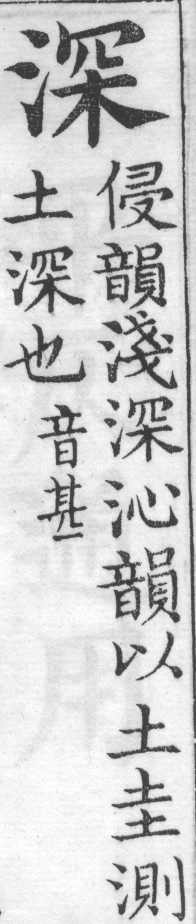 深
侵韻淺深沁韻以土圭測
土深也音甚